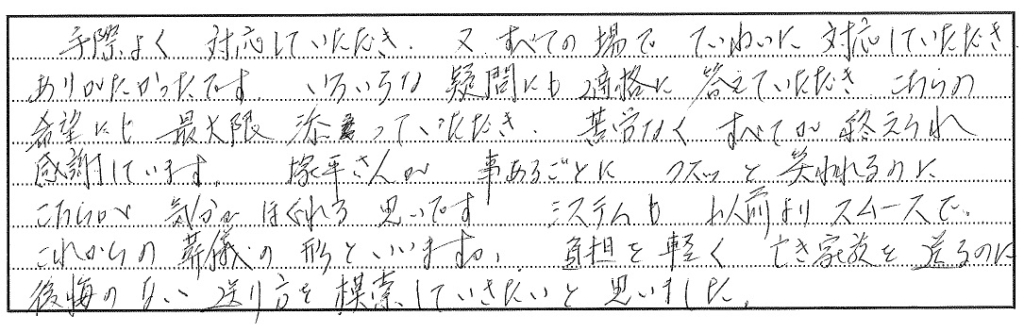 手際よく 対応していただき、又 すべての場で ていねいに 対応していただき
ありがたかったです いろいろな 疑問にも 適格に 答えていただき こちらの
希望にも 最大限 添っていただき、苦労なく すべてが 終えられ
感謝しています。 塚平さんが 事あるごとに クスッと 笑われるのに
こちらが 気分が ほぐれる 思いです システムも 以前より スムースで、
これからの 葬儀の 形といいますか、 負担を軽く 亡き家族を 送るのに
後悔の ない 送り方を 模索していきたいと 思いました。